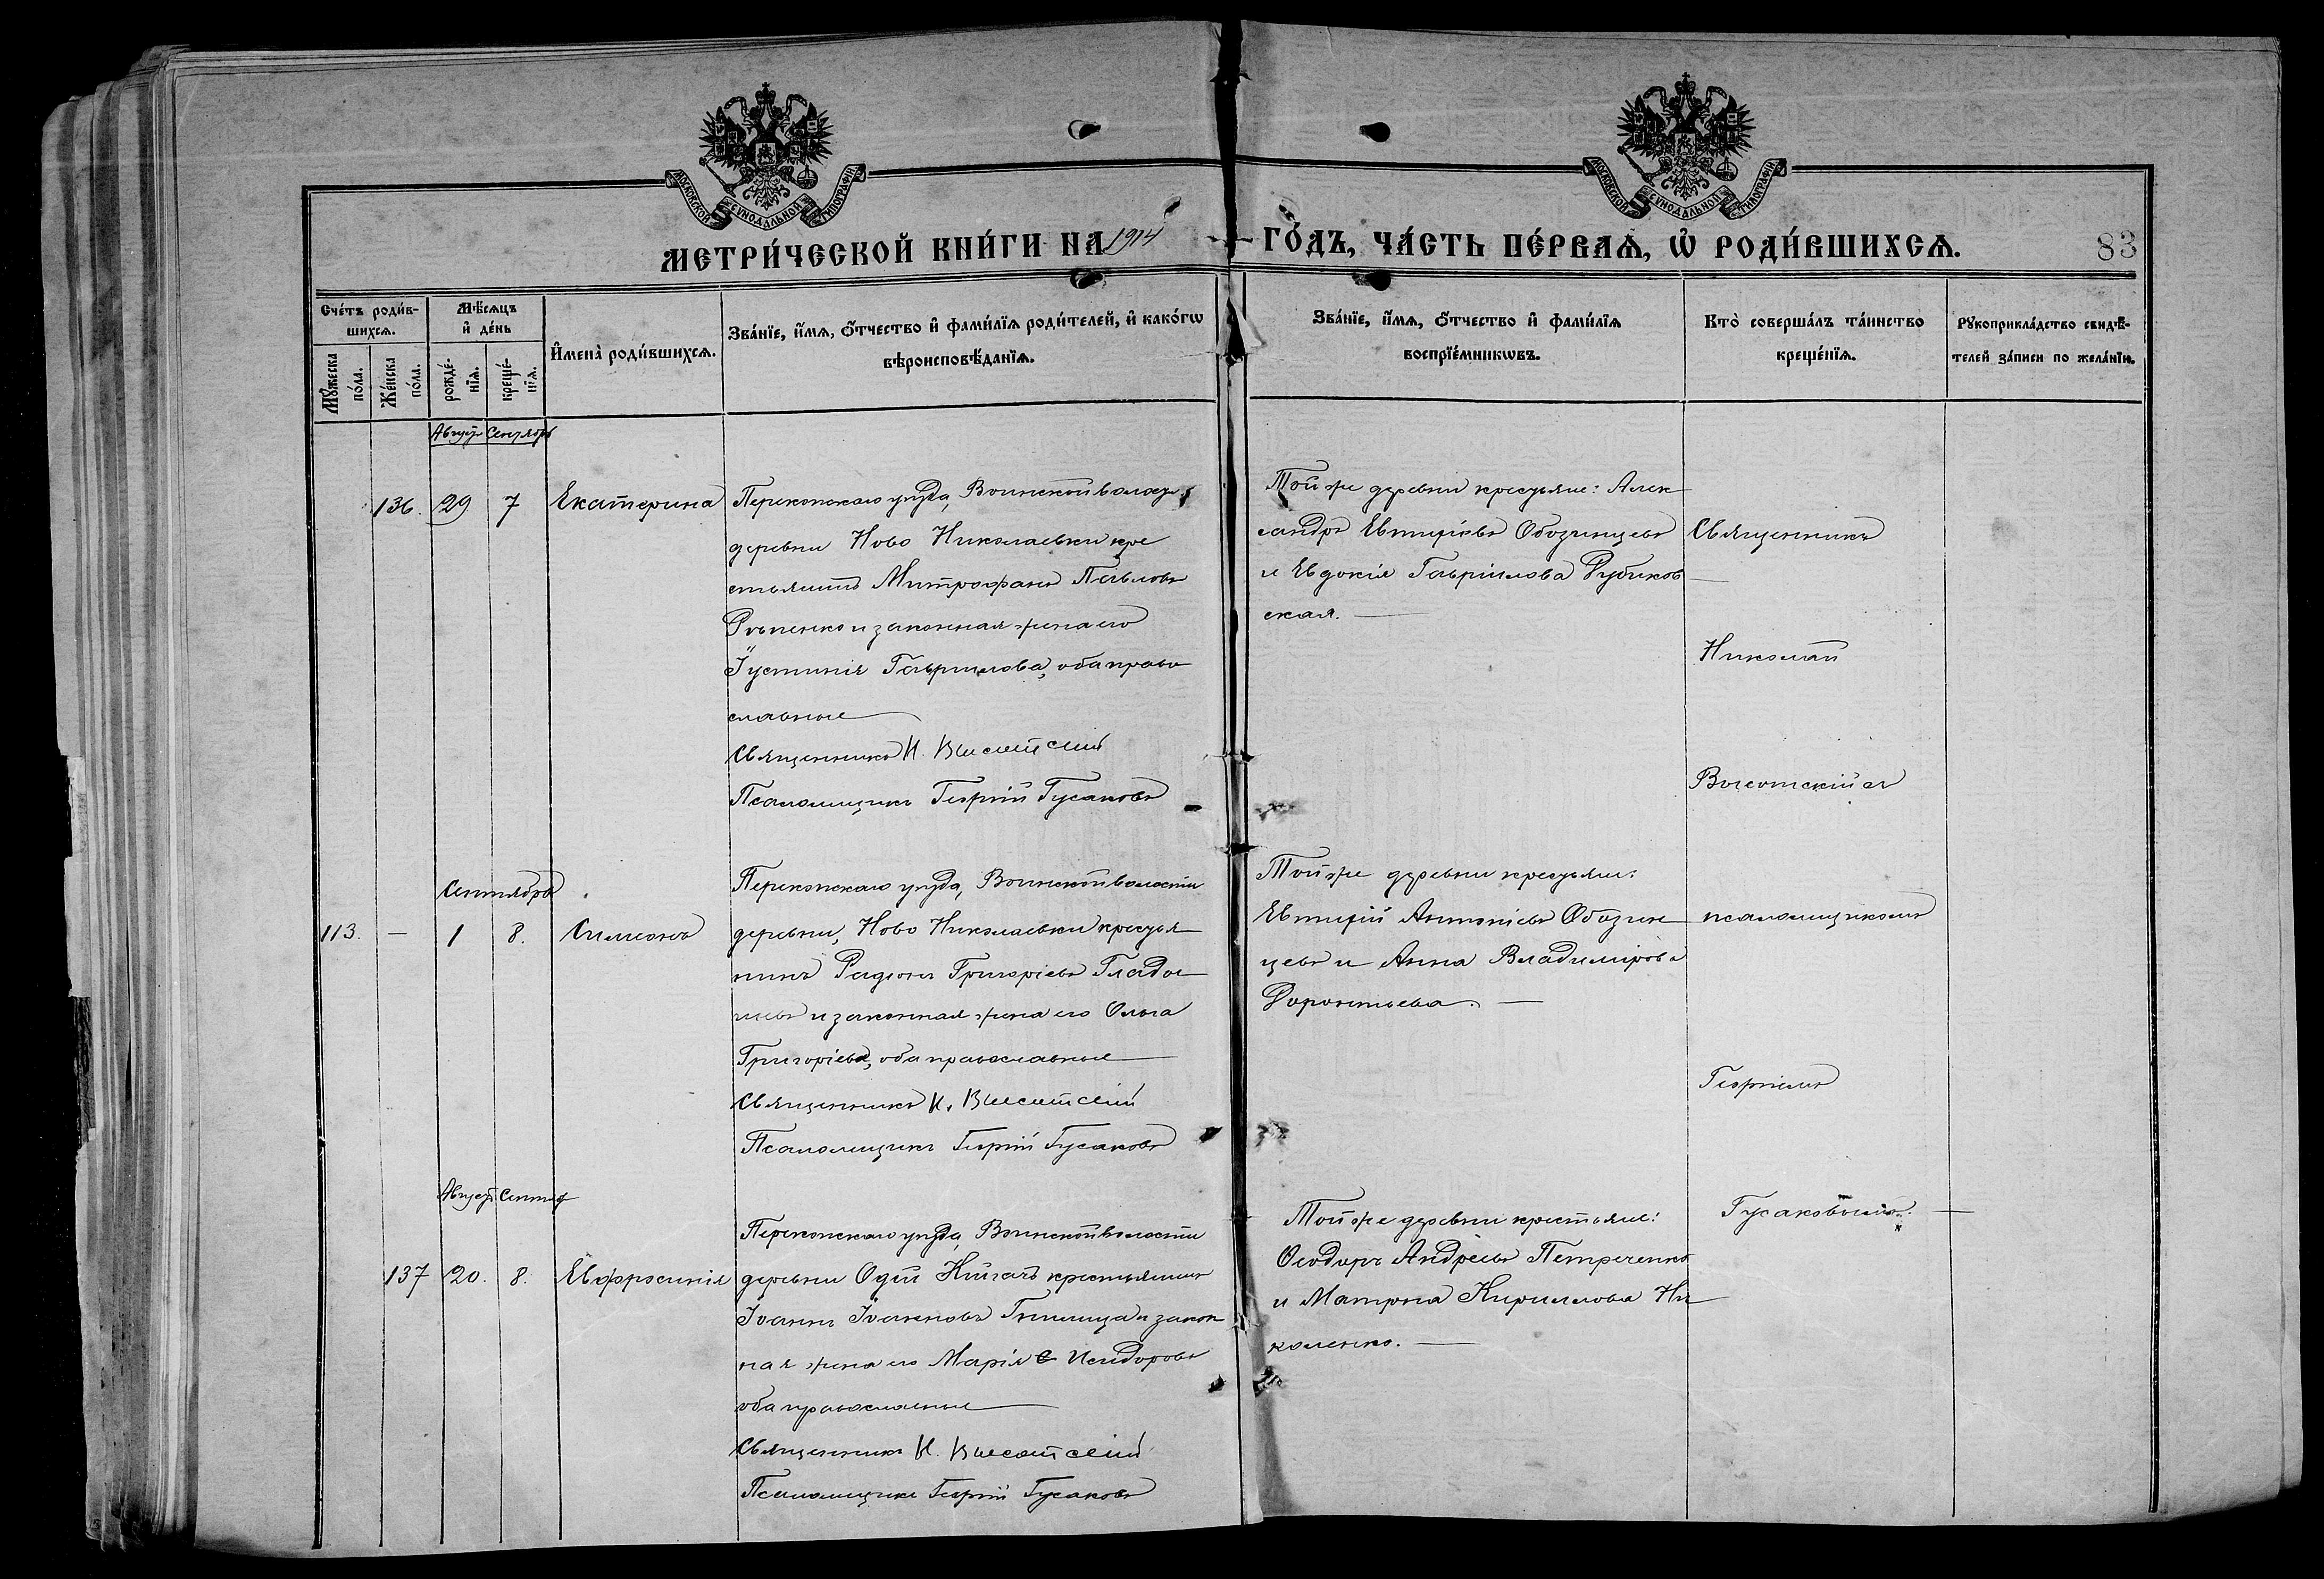 МОСКОВСКОЙ СѴНОДАЛЬНОЙ ТИПОГРАФІИ
МОСКОВСКОЙ СѴНОДАЛЬНОЙ ТИПОГРАФІИ
МЕТРИ́ЧЕСКОЙ КНИ́ГИ НА 1914 ГО́ДЪ, ЧА́СТЬ ПЕ́РВАѦ, Ѡ҆ РОДИ́ВШИХСѦ.
83
Сче́тъ роди́в-
шихсѧ.
Мꙋ́жеска
по́ла.
Же́нска
по́ла.
Мѣ́сѧцъ
и҆ де́нь
рожде́-
нїѧ.
креще́-
нїѧ.
И҆мена̀ роди́вшихсѧ.
Зва́нїе, и҆́мѧ, ѻ҆́тчество и҆ фами́лїѧ роди́телей, и҆ како́гѡ
вѣроисповѣ́данїѧ.
Зва́нїе, и҆́мѧ, ѻ҆́тчество и҆ фами́лїѧ
воспрїе́мникѡвъ.
Кто̀ соверша́лъ та́инство
креще́нїѧ.
Рꙋкоприкла́дство свидѣ́-
телей за́писи по жела́нїю.
Август Сентябрь
136. 29 7 Екатерина
Перекопскаго уѣзда, Воинской волости
деревни Ново Николаевки кре
стьянинъ Митрофанъ Павловъ
и законная жена его
Іустинія Гавриилова, оба право
славные
Священникъ Н. Высотскій
Псаломщикъ Георгій Гусаковъ
Той же деревни крестьяне: Алек
сандръ Евтихіевъ Обозинцевъ
и Евдокія Гавріилова
ская.
Священникъ
Николай
Высотскій съ
Сентябрь
113. — 1 8. Симеонъ
Перекопскаго уѣзда, Воинской волости
деревни, Ново Николаевки крестья
нинъ Родіонъ Григоріевъ Глады
шевъ и законная жена его Ольга
Григоріева, оба православные
Священникъ Н. Высотскій
Псаломщикъ Георгій Гусаковъ
Той же деревни крестьяне:
Евтихій Антоніевъ Обозин
цевъ и Анна Владимірова
псаломщикомъ
Георгіемъ
Август Сентяб
137 20. 8. Евфросинія
Перекопскаго уѣзда, Воинской волости
деревни крестьянинъ
Іоаннъ Іоанновъ и закон
ная жена его Марія Исидорова
оба православные
Священникъ Н. Высотскій
Псаломщикъ Георгій Гусаковъ
Той же деревни крестьяне:
Ѳеодоръ Андреевъ Петреченко
и Матрона Кириллова Ни
коленко.
Гусаковымъ.